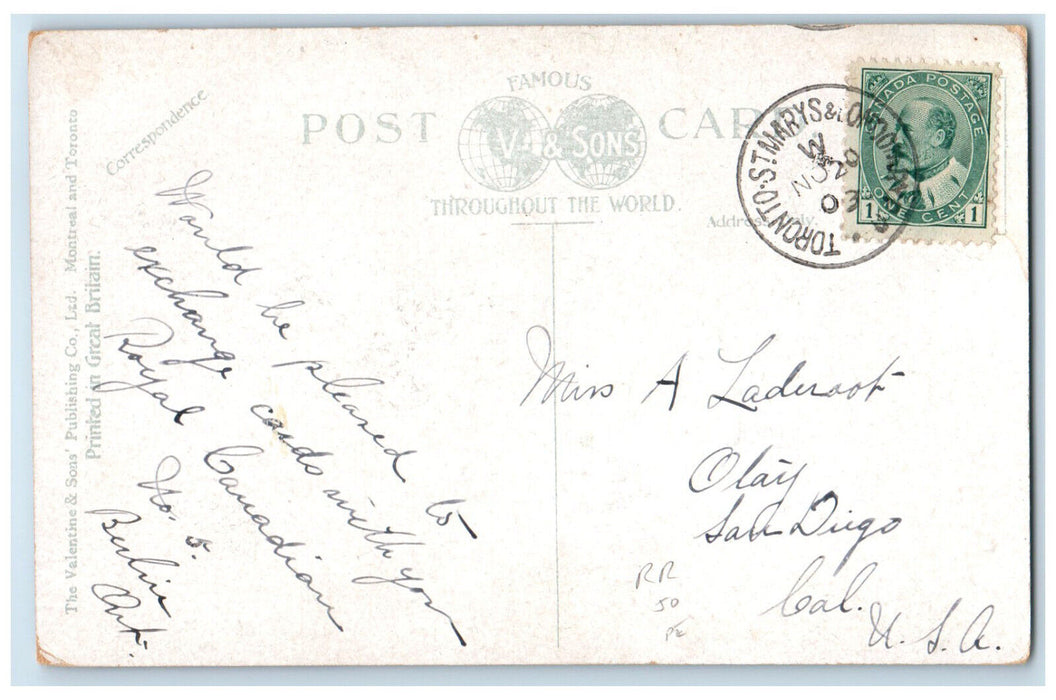 FAMOUS
POST CARD
V. & SONS
THROUGHOUT THE WORLD.
Correspondence
Address Only.
The Valentine & Sons' Publishing Co., Ltd. Montreal and Toronto
Printed in Great Britain.
CANADA POSTAGE
1 ONE CENT 1
TORONTO. ST. MARYS & LONDON
Would be pleased to
exchange cards with you
Royal Canadian
No. 5.
Berlin
Ont.
Miss A
Olay
San Diego
Cal.
U. S. A.
RR
50